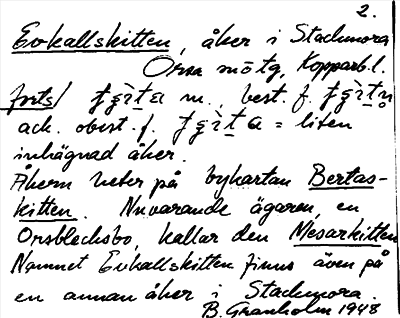 2.
Evkallskitten, åker i Stackmora
Orsa mötg, Kopparb.l.
forts/ m., best. f.
ack. obest. f. = liten
inhägnad åker.
Åkern heter på bykartan Bertas-
kitten. Nuvarande ägaren, en
Orsblecksbo, kallar den Mesarkitten
Namnet Evkallskitten finns även på
en annan åker i Stackmora.
B. Granholm 1948